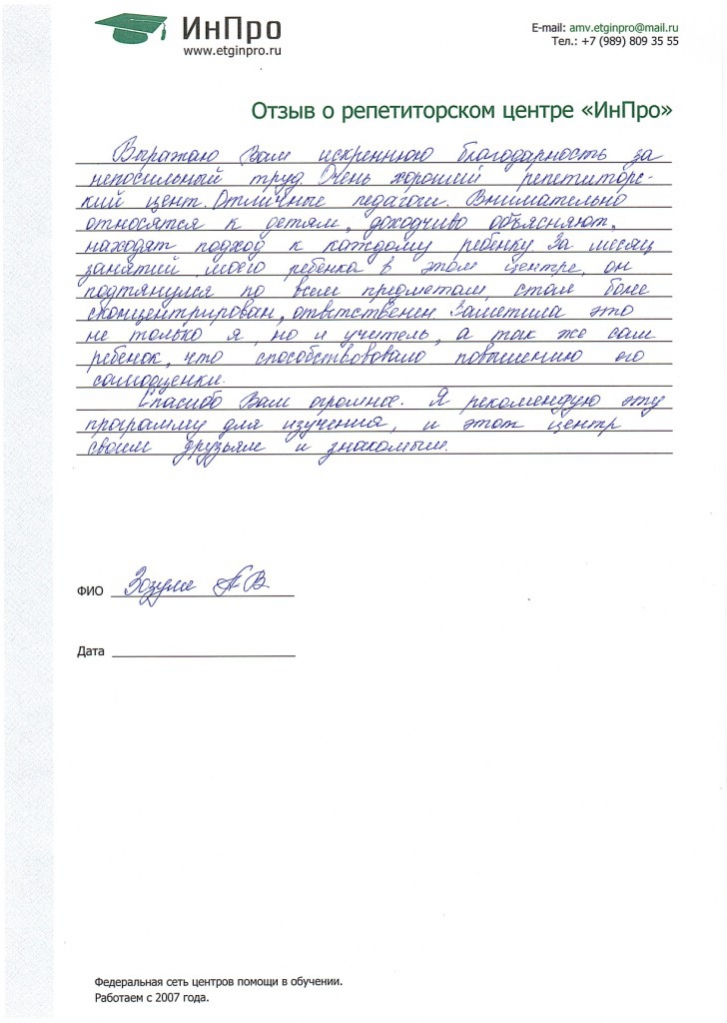 ИнПро
www.etginpro.ru
E-mail: amv.etginpro@mail.ru
Тел.: +7 (989) 809 35 55
Отзыв о репетиторском центре «ИнПро»
Выражаю Вам искреннюю благодарность за
непосильный труд. Очень хороший репетиторс-
кий цент. Отличные педагоги. Внимательно
относятся к детям, доходчиво объясняют,
находят подход к каждому ребенку. За месяц
занятий моего ребенка в этом центре, он
подтянулся по всем предметам, стал более
сконцентрирован, ответственен. Заметила это
не только я, но и учитель, а так же сам
ребенок, что способствовало повышению его
самооценки.
Спасибо Вам огромное. Я рекомендую эту
программу для изучения, и этот центр
своим друзьям и знакомым.
ФИО Зозуля А В
Дата
Федеральная сеть центров помощи в обучении.
Работаем с 2007 года.